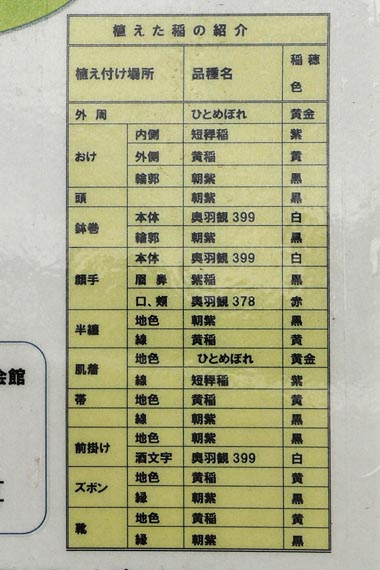 植えた稲の紹介
植え付け場所 品種名 稲穂色
外周 ひとめぼれ 黄金
おけ 内側 短稈稲 紫
外側 黄稲 黄
輪郭 朝紫 黒
頭 朝紫 黒
鉢巻 本体 奥羽観 399 白
輪郭 朝紫 黒
顔手 本体 奥羽観 399 白
眉 鼻 紫稲 黒
口、頬 奥羽観 378 赤
半纏 地色 朝紫 黒
線 黄稲 黄
肌着 地色 ひとめぼれ 黄金
線 短稈稲 紫
帯 地色 黄稲 黄
線 朝紫 黒
前掛け 地色 朝紫 黒
酒文字 奥羽観 399 白
ズボン 地色 黄稲 黄
縁 朝紫 黒
靴 地色 黄稲 黄
縁 朝紫 黒
会館